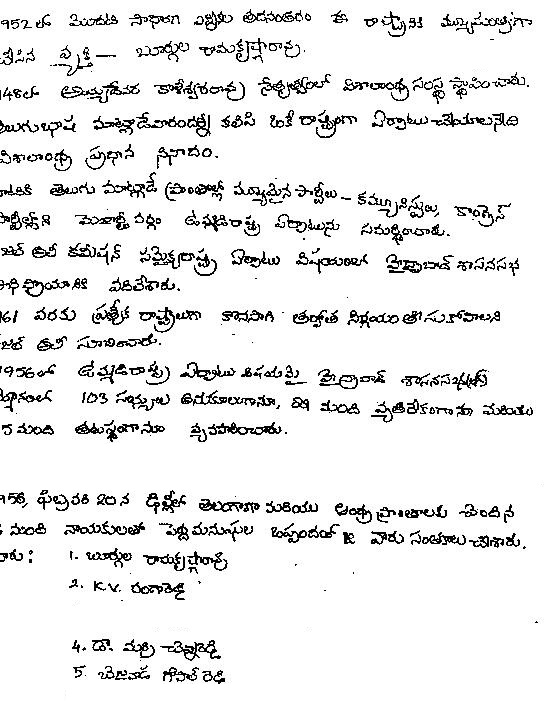 952లో మొదటి సాధారణ ఎన్నికల తదనంతరం ఈ రాష్ట్రానికి ముఖ్యమంత్రిగా
చేసిన వ్యక్తి — బూర్గుల రామకృష్ణారావు.
948లో అయ్యదేవర కాళేశ్వరరావు నేతృత్వంలో విశాలాంధ్ర సంస్థ స్థాపించారు.
తెలుగుభాష మాట్లాడేవారందర్ని కలిపి ఒకే రాష్ట్రంగా ఏర్పాటు చేయాలనేది
విశాలాంధ్ర ప్రధాన నినాదం.
తెలుగు మాట్లాడే ప్రాంతాల్లో ముఖ్యమైన పార్టీలు – కమ్యూనిస్టులు, కాంగ్రెస్
పార్టీల్లోని మెజార్టీ వర్గం ఉమ్మడిరాష్ట్ర ఏర్పాటును సమర్థించారు.
జల్ అలీ కమీషన్ సమైక్యరాష్ట్ర ఏర్పాటు విషయంలో హైద్రాబాద్ శాసనసభ
అభిప్రాయానికి వదిలేశారు.
961 వరకు ప్రత్యేక రాష్ట్రాలుగా కొనసాగి తర్వాత నిర్ణయం తీసుకోవాలని
జల్ అలీ సూచించారు.
1956లో ఉమ్మడిరాష్ట్ర ఏర్పాటు విషయమై హైద్రాబాద్ శాసనసభలో
103 సభ్యులు అనుకూలంగానూ, 29 మంది వ్యతిరేకంగానూ మరియు
5 మంది తటస్థంగానూ వ్యవహరించారు.
956, ఫిబ్రవరి 20న ఢిల్లీలో తెలంగాణ మరియు ఆంధ్ర ప్రాంతాలకు చెందిన
మంది నాయకులతో పెద్దమనుషుల ఒప్పందంపై వారు సంతకాలు చేశారు.
వారు : 1. బూర్గుల రామకృష్ణారావు
2. K.V. రంగారెడ్డి
4. డా. మర్రి చెన్నారెడ్డి
5. బెజవాడ గోపాల్ రెడ్డి